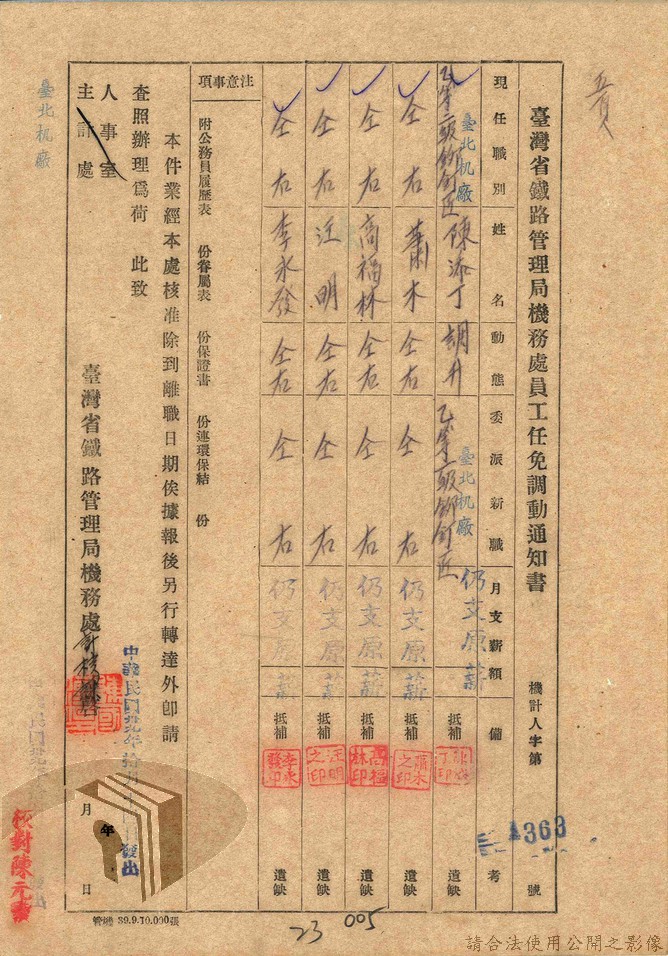 臺灣省鐵路管理局機務處員工任免調動通知書
機計人字第 A363 號
現任職別 姓名 動態 委派新職 月支薪額 備考
臺北机廠 乙等二級鉚釘匠 陳添丁 調升 臺北机廠 乙等一級鉚釘匠 仍支原薪 抵補 遺缺
仝右 蕭木 仝右 仝右 仍支原薪 抵補 蕭木之印 遺缺
仝右 高福林 仝右 仝右 仍支原薪 抵補 高福林印 遺缺
仝右 汪明 仝右 仝右 仍支原薪 抵補 汪明之印 遺缺
仝右 李永發 仝右 仝右 仍支原薪 抵補 李永發印 遺缺
注意事項 附公務員履歷表 份眷屬表 份保證書 份連環保結 份
本件業經本處核准除到離職日期俟據報後另行轉達外卽請
查照辦理爲荷 此致
人事室
主計處
臺灣省鐵路管理局機務處
年 月 日
發出
臺北机廠
校對陳元
管總 39.9.10.000張
23
005
請合法使用公開之影像